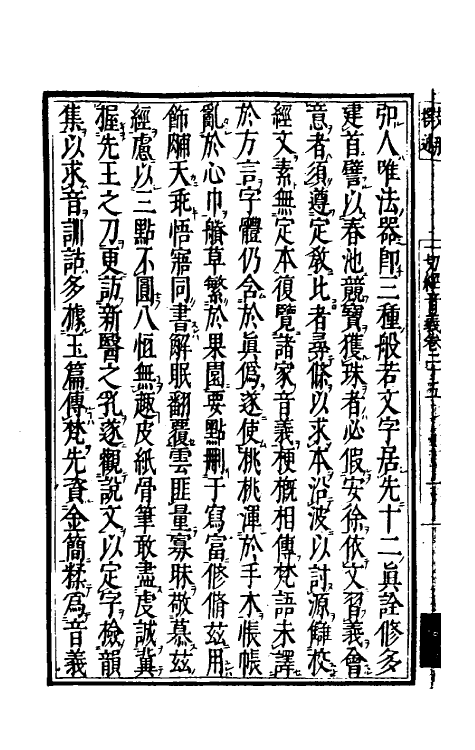 卵人唯法器即三種般若文字居先十二眞詮修多
建首譬以春池競寶獲珠者必假安徐依文習義會
意者須遵定敎比者尋條以求本沿波以討源讎校
經文素無定本復覽諸家音義梗槪相傳梵語未譯
於方言字體仍含於眞僞遂使桃桃渾於手木悵帳
亂於心巾䕯草繁於果園要點刪于寫富修脩玆用
飾晡天乖悟寤同書解眠翻覆雲匪量寡昧敬慕玆
經慮以三點不圓八恆無趣皮紙骨筆敢盡虔誠冀
握先王之刀更訪新醫之乳遂觀說文以定字檢韻
集以求音訓詁多據玉篇傳梵先資金簡糅爲音義
一切經音義卷二十五